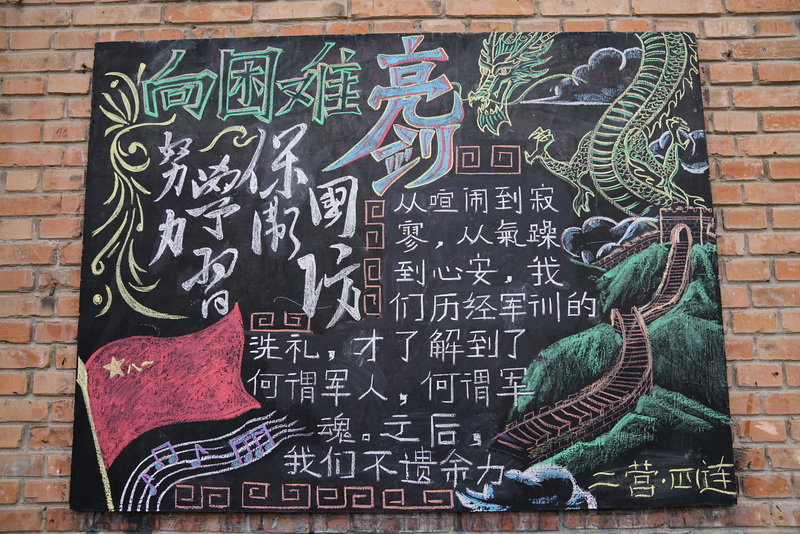 向困难
亮剑
努力
學習
保衛
國防
从喧闹到寂
寥，从氣躁
到心安，我
们历经军训的
洗礼，才了解到了
何谓军人，何谓军
魂。之后，
我们不遗余力
八一
二营·四连